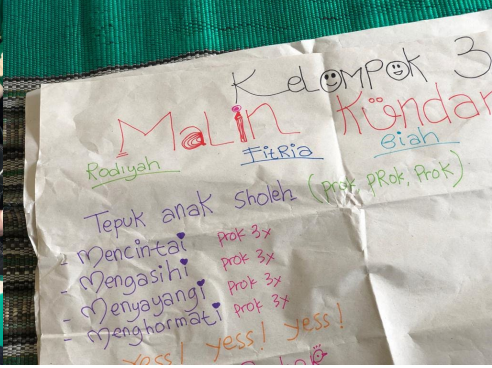 Kelompok 3
Malin Kundan
Rodiyah FitRia Biah
Tepuk anak Sholeh (prok, PRok, ProK)
- Mencintai prok 3x
- Mengasihi prok 3x
- Menyayangi prok 3x
- Menghormati prok 3x
yess! yess! yess!